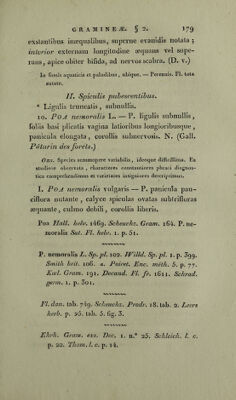 GRAMINEÆ. § 2. 179
exstantibus inæqualibus, superne evanidis notata ;
interior externam longitudine æquans vel supe-
rans, apice obiter bifida, ad nervos scabra. (D. v.)
In fossis aquaticis et paludibus, ubique. — Perennis. Fl. tota
æstate.
II. Spiculis pubescentibus.
* Ligulis truncatis, subnullis.
10. POA nemoralis L. — P. ligulis subnullis,
foliis basi plicatis vagina latioribus longioribusque,
panicula elongata, corollis subnervosis. N. (Gall.
Pâturin des forets.)
OBS. Species summopere variabilis, ideoque difficillima. Ea
studiose observata, characteres constantiores phrasi diagnos-
tica comprehendimus et varietates insigniores descripsimus.
I. POA nemoralis vulgaris — P. panicula pau-
ciflora nutante, calyce spiculas ovatas subtrifloras
æquante, culmo debili, corollis liberis.
Poa Hall. helv. 1469. Scheuchz. Gram. 164. P. ne-
moralis Sut. Fl. helv. 1. p. 51.
P. nemoralis L. Sp. pl. 102. Willd. Sp. pl. 1. p. 399.
Smith brit. 106. α. Poiret. Enc. méth. 5. p. 77.
Kœl. Gram. 191. Decand. Fl. fr. 1611. Schrad.
germ. 1. p. 301.
Fl. dan. tab. 749. Scheuchz. Prodr. 18. tab. 2. Leers
herb. p. 26. tab. 5. fig. 3.
Ehrh. Gram. exs. Dec. 1. n.° 25. Schleich. l. c.
p. 22. Thom. l. c. p. 14.